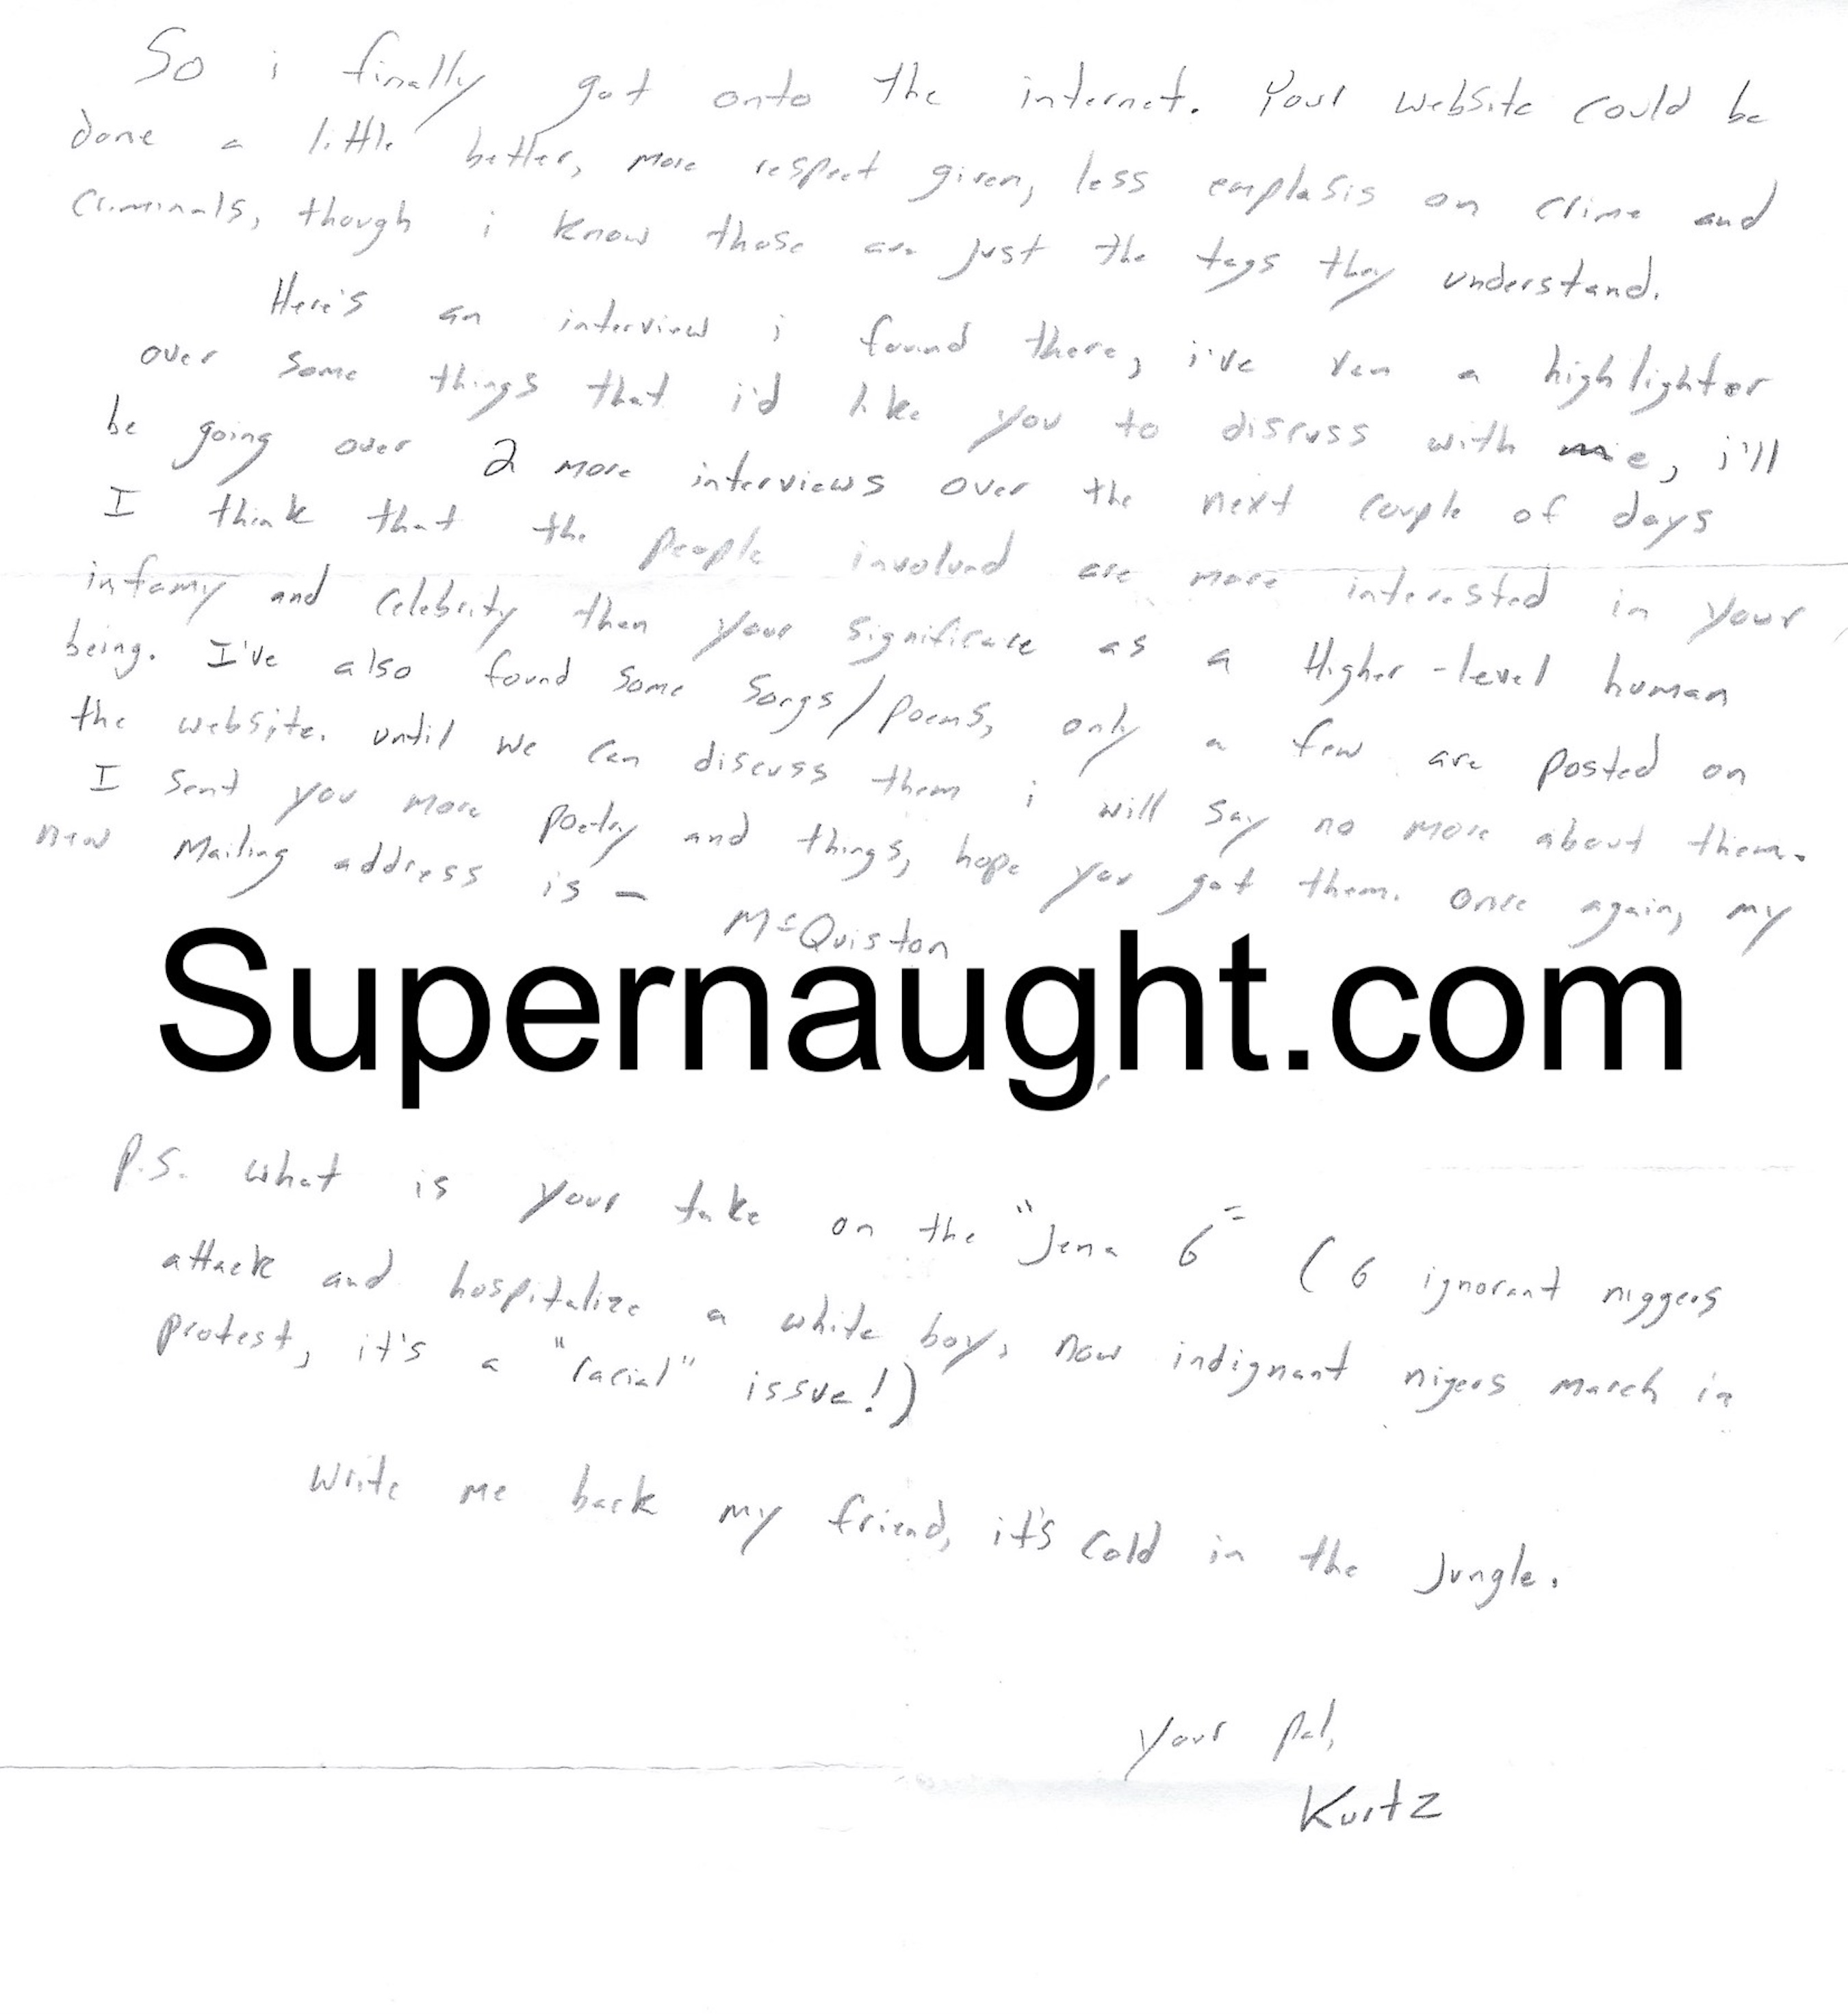 So i finally got onto the internet. Your website could be
done a little better, more respect given, less emplasis on crime and
criminals, though i know those are just the tags they understand.
Here's an interview i found there, i've ran a highlighter
over some things that i'd like you to discuss with me, i'll
be going over 2 more interviews over the next couple of days
I think that the people involved are more interested in your
infamy and celebrity then your significance as a Higher-level human
being. I've also found some songs/poems, only a few are posted on
the website. until we can discuss them i will say no more about them.
I sent you more poetry and things, hope you got them. Once again, my
new mailing address is –
McQuiston
Supernaught.com
P.S. What is your take on the "Jena 6" (6 ignorant niggers
attack and hospitalize a white boy, now indignant nigers march in
protest, it's a "racial" issue!)
Write me back my friend, it's cold in the jungle.
Your pal,
Kurtz